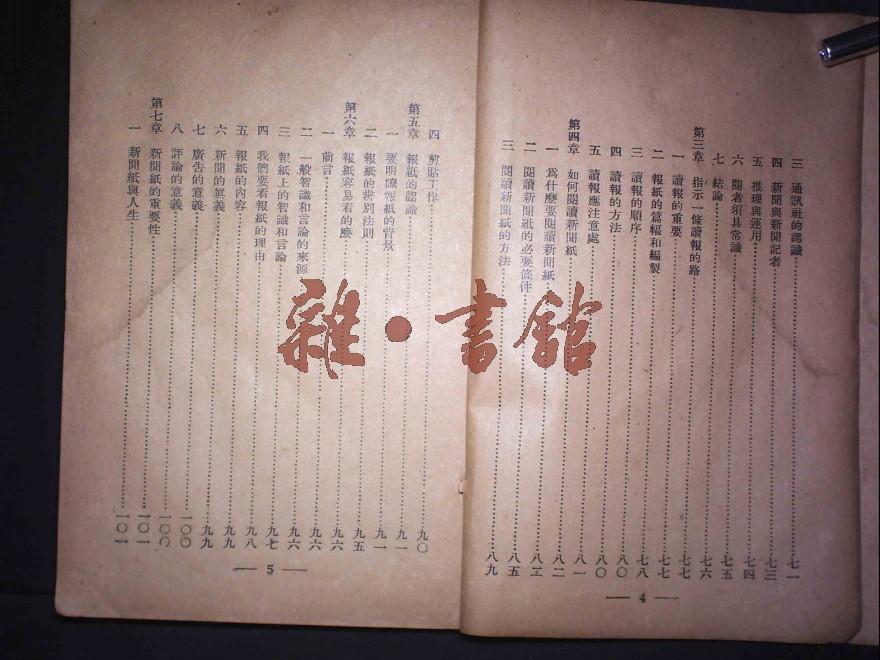 三 通訊社的認識……七一
四 新聞與新聞記者……七三
五 推理與運用……七四
六 閱者須具常識……七五
七 結論……七六
第三章 指示一條讀報的路……七七
一 讀報的重要……七七
二 報紙的篇幅和編製……七八
三 讀報的順序……八〇
四 讀報的方法……八〇
五 讀報應注意處……八一
第四章 如何閱讀新聞紙……八二
一 爲什麼要閱讀新聞紙
二 閱讀新聞紙的必要條件……八五
三 閱讀新聞紙的方法……八九
— 4 —
四 剪貼工作……九〇
第五章 報紙的認識……九一
一 要明瞭報紙的背景……九一
二 報紙的辨別法則……九五
第六章 報紙容易看的麽……九六
一 前言……九六
二 一般智識和言論的來源……九六
三 報紙上的智識和言論……九七
四 我們要看報紙的理由……九八
五 報紙的內容……九九
六 新聞的眞義……九九
七 廣告的意義……一〇〇
八 評論的意義……一〇〇
第七章 新聞紙的重要性……一〇一
一 新聞紙與人生……一〇一
— 5 —
雜·書館